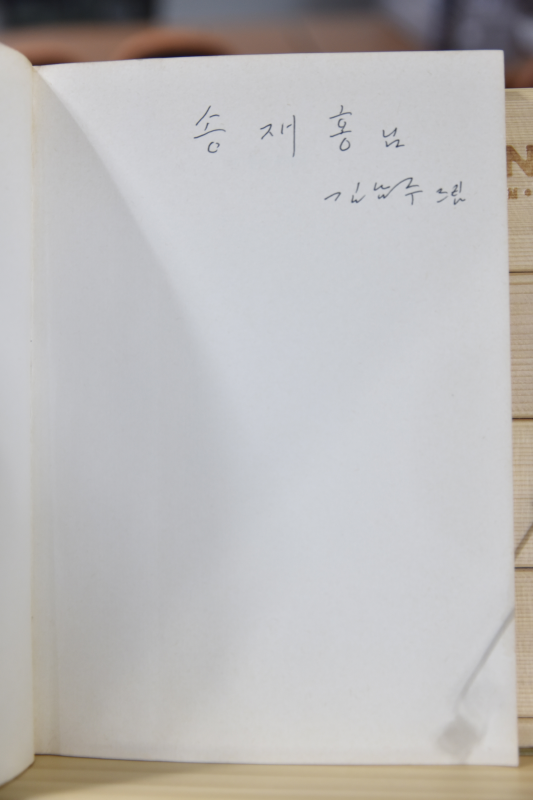 송재홍 님
김남주 드림